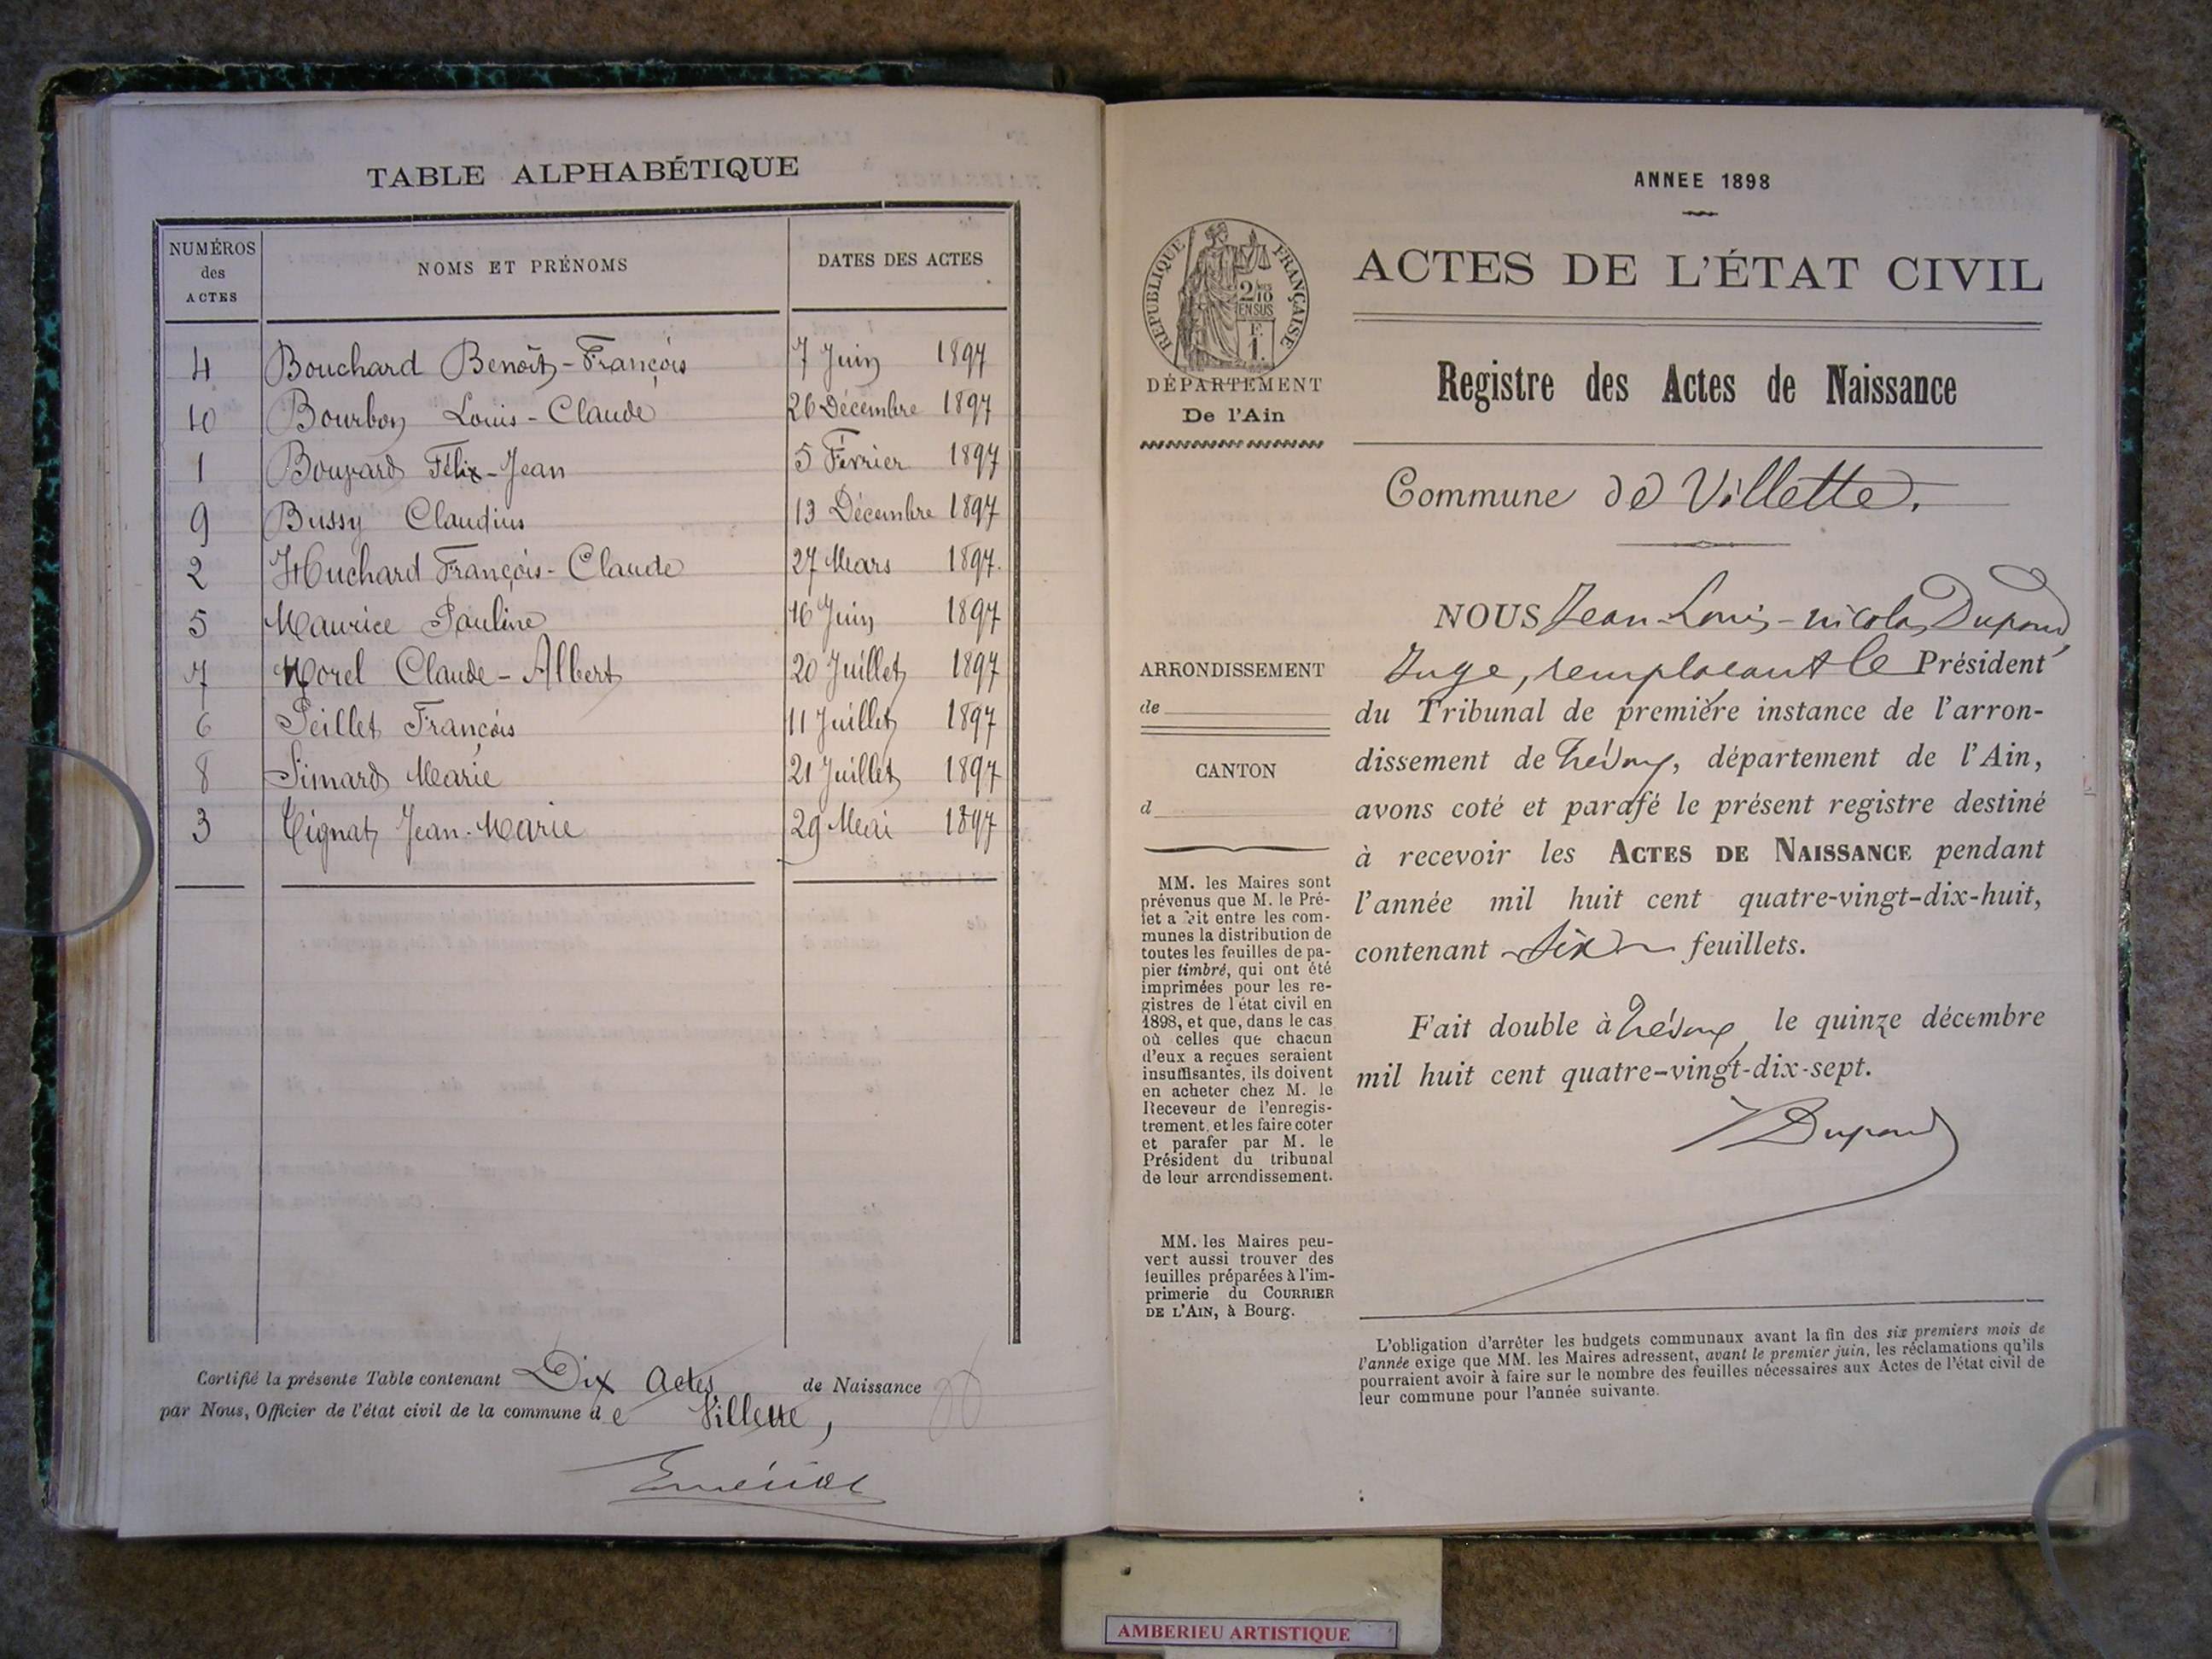 TABLE ALPHABÉTIQUE
NUMÉROS des ACTES NOMS ET PRÉNOMS DATES DES ACTES
4 Bouchard Benoît-François 7 Juin 1897
10 Bourbon Louis-Claude 26 Décembre 1897
1 Bouvard Félix-Jean 5 Février 1897
9 Bussy Claudius 13 Décembre 1897
2 Huchard François-Claude 27 Mars 1897.
5 Maurice Pauline 16 Juin 1897
7 Morel Claude-Albert 20 Juillet 1897
6 Peillet François 11 Juillet 1897
8 Simard Marie 21 Juillet 1897
3 Tignat Jean-Marie 29 Mai 1897
Certifié la présente Table contenant Dix Actes de Naissance
par Nous, Officier de l'état civil de la commune de Villette,
ANNEE 1898
REPUBLIQUE FRANÇAISE
2/10 EN SUS
F. 1.
DÉPARTEMENT
De l'Ain
ACTES DE L'ÉTAT CIVIL
Registre des Actes de Naissance
Commune de Villette.
ARRONDISSEMENT
de
CANTON
d
MM. les Maires sont
prévenus que M. le Pré-
fet a fait entre les com-
munes la distribution de
toutes les feuilles de pa-
pier timbré, qui ont été
imprimées pour les re-
gistres de l'état civil en
1898, et que, dans le cas
où celles que chacun
d'eux a reçues seraient
insuffisantes, ils doivent
en acheter chez M. le
Receveur de l'enregis-
trement, et les faire coter
et parafer par M. le
Président du tribunal
de leur arrondissement.
MM. les Maires peu-
vent aussi trouver des
feuilles préparées à l'im-
primerie du COURRIER
DE L'AIN, à Bourg.
NOUS Jean-Louis-Nicolas Dupond,
Juge, remplaçant le Président
du Tribunal de première instance de l'arron-
dissement de Trévoux, département de l'Ain,
avons coté et parafé le présent registre destiné
à recevoir les ACTES DE NAISSANCE pendant
l'année mil huit cent quatre-vingt-dix-huit,
contenant six feuillets.
Fait double à Trévoux, le quinze décembre
mil huit cent quatre-vingt-dix-sept.
Dupond
L'obligation d'arrêter les budgets communaux avant la fin des six premiers mois de
l'année exige que MM. les Maires adressent, avant le premier juin, les réclamations qu'ils
pourraient avoir à faire sur le nombre des feuilles nécessaires aux Actes de l'état civil de
leur commune pour l'année suivante.
AMBERIEU ARTISTIQUE